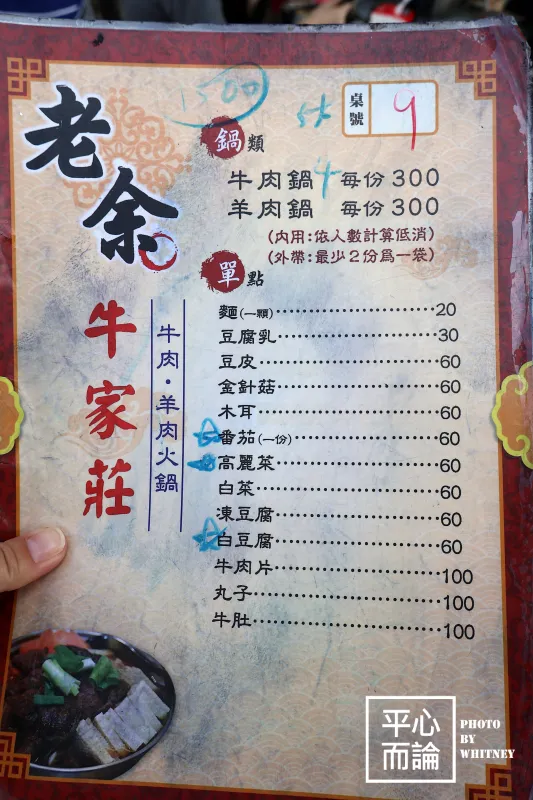 老余
牛家莊
牛肉・羊肉火鍋
1500
5大
桌號
9
鍋類
牛肉鍋 4 每份300
羊肉鍋 每份300
(內用:依人數計算低消)
(外帶:最少2份爲一袋)
單點
麵(一顆)20
豆腐乳30
豆皮60
金針菇60
木耳60
番茄(一份)60
高麗菜60
白菜60
凍豆腐60
白豆腐60
牛肉片100
丸子100
牛肚100
平心而論
PHOTO
BY
WHITNEY